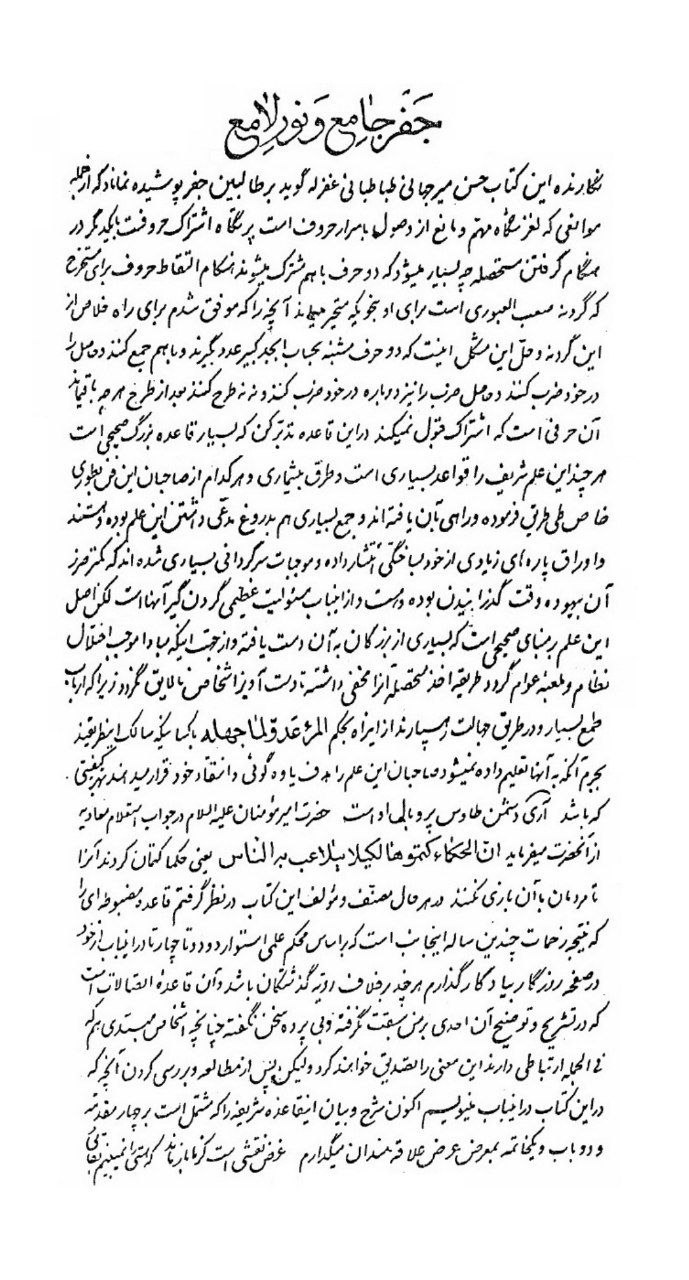 جفر جامع و نور لامع
نگارنده این کتاب حسن میرجهانی طباطبائی غفرله گوید بر طالبین جفر پوشیده نماناد که از جمله
موانعی که لغزشگاه مهم و مانع از وصول باسرار حروف است پرتگاه اشتراک حروفست بایکدیگر در
هنگام گرفتن مستحصله چه بسیار میشود که دو حرف با هم مشترک میشوند هنگام التقاط حروف برای مستخرج
که گردنه صعب العبوری است برای او بنحویکه متحیر میماند آنچه را که موفق شدم برای راه خلاص از
این گردنه و حل این مشکل اینست که دو حرف مشتبه بحساب ابجد کبیر عدد گیرند و با هم جمع کنند و حاصل را
در خود ضرب کنند و حاصل ضرب را نیز دوباره در خود ضرب کنند و نه نه طرح کنند بعد از طرح هر چه باقیماند
آن حرفی است که اشتراک قبول نمیکند در این قاعده تدبر کن که بسیار قاعده بزرگ صحیحی است
هر چند این علم شریف را قواعد بسیاری است و طرق بیشماری و هر کدام از صاحبان این فن بطوری
خاص طی طریق فرموده و راهی بآن یافته‌اند و جمع بسیاری هم بدروغ مدعی داشتن این علم بوده و هستند
و اوراق پاره‌های زیادی از خود ساختگی انتشار داده و موجبات سرگردانی بسیاری شده‌اند که کمتر ضرر
آن بیهوده وقت گذرانیدن بوده و هست و از اینباب مسئولیت عظیمی گردن گیر آنها است لکن اصل
این علم بر مبنای صحیحی است که بسیاری از بزرگان به آن دست یافته و از جهت اینکه مبادا موجب اختلال
نظام و ملعبه عوام گردد طریقه اخذ مستحصله آنرا مخفی داشته تا دست آویز اشخاص نالایق نگردد زیرا که ارباب
طمع بسیار و در طریق جهالت رهسپارند از اینراه بحکم المرء عدو لما جهله با کسانیکه سالک اینطریقند
بجرم آنکه به آنها تعلیم داده نمیشود صاحبان این علم را هدف یاوه گوئی و انتقاد خود قرار میدهند بهر کیفیتی
که باشد آری دشمن طاوس پر و بال او است حضرت امیر مؤمنان علیه السلام در جواب استعلام معاویه
از آنحضرت میفرماید ان الحکماء کتموها لکیلا یتلاعب به الناس یعنی حکما کتمان کردند آنرا
تا مردمان با آن بازی نکنند در هر حال مصنف و مؤلف این کتاب در نظر گرفتم قاعده مضبوطه‌ای را
که نتیجه زحمات چندین ساله اینجانب است که بر اساس محکم علمی استوار و دودوتا چهارتا در اینباب از خود
در صفحه روزگار بیادگار گذارم هر چند بر خلاف رویه گذشتگان باشد و آن قاعدهٔ اتصالات است
که در تشریح و توضیح آن احدی بر من سبقت نگرفته و بی پرده سخن نگفته چنانچه اشخاص مبتدی هم که
فی الجمله ارتباطی دارند این معنی را تصدیق خواهند کرد ولیکن پس از مطالعه و بررسی کردن آنچه که
در این کتاب در اینباب مینویسم اکنون شرح و بیان اینقاعده شریفه را که مشتمل است بر چهار مقدمه
و دو باب و یکخاتمه بمعرض عرض علاقه‌مندان میگذارم غرض نقشی است کز ما باز ماند که هستی را نمیبینم بقائی